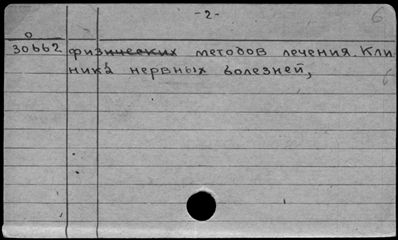 -2-
6
0
30662 физических методов лечения. Кли
ника нервных болезней,